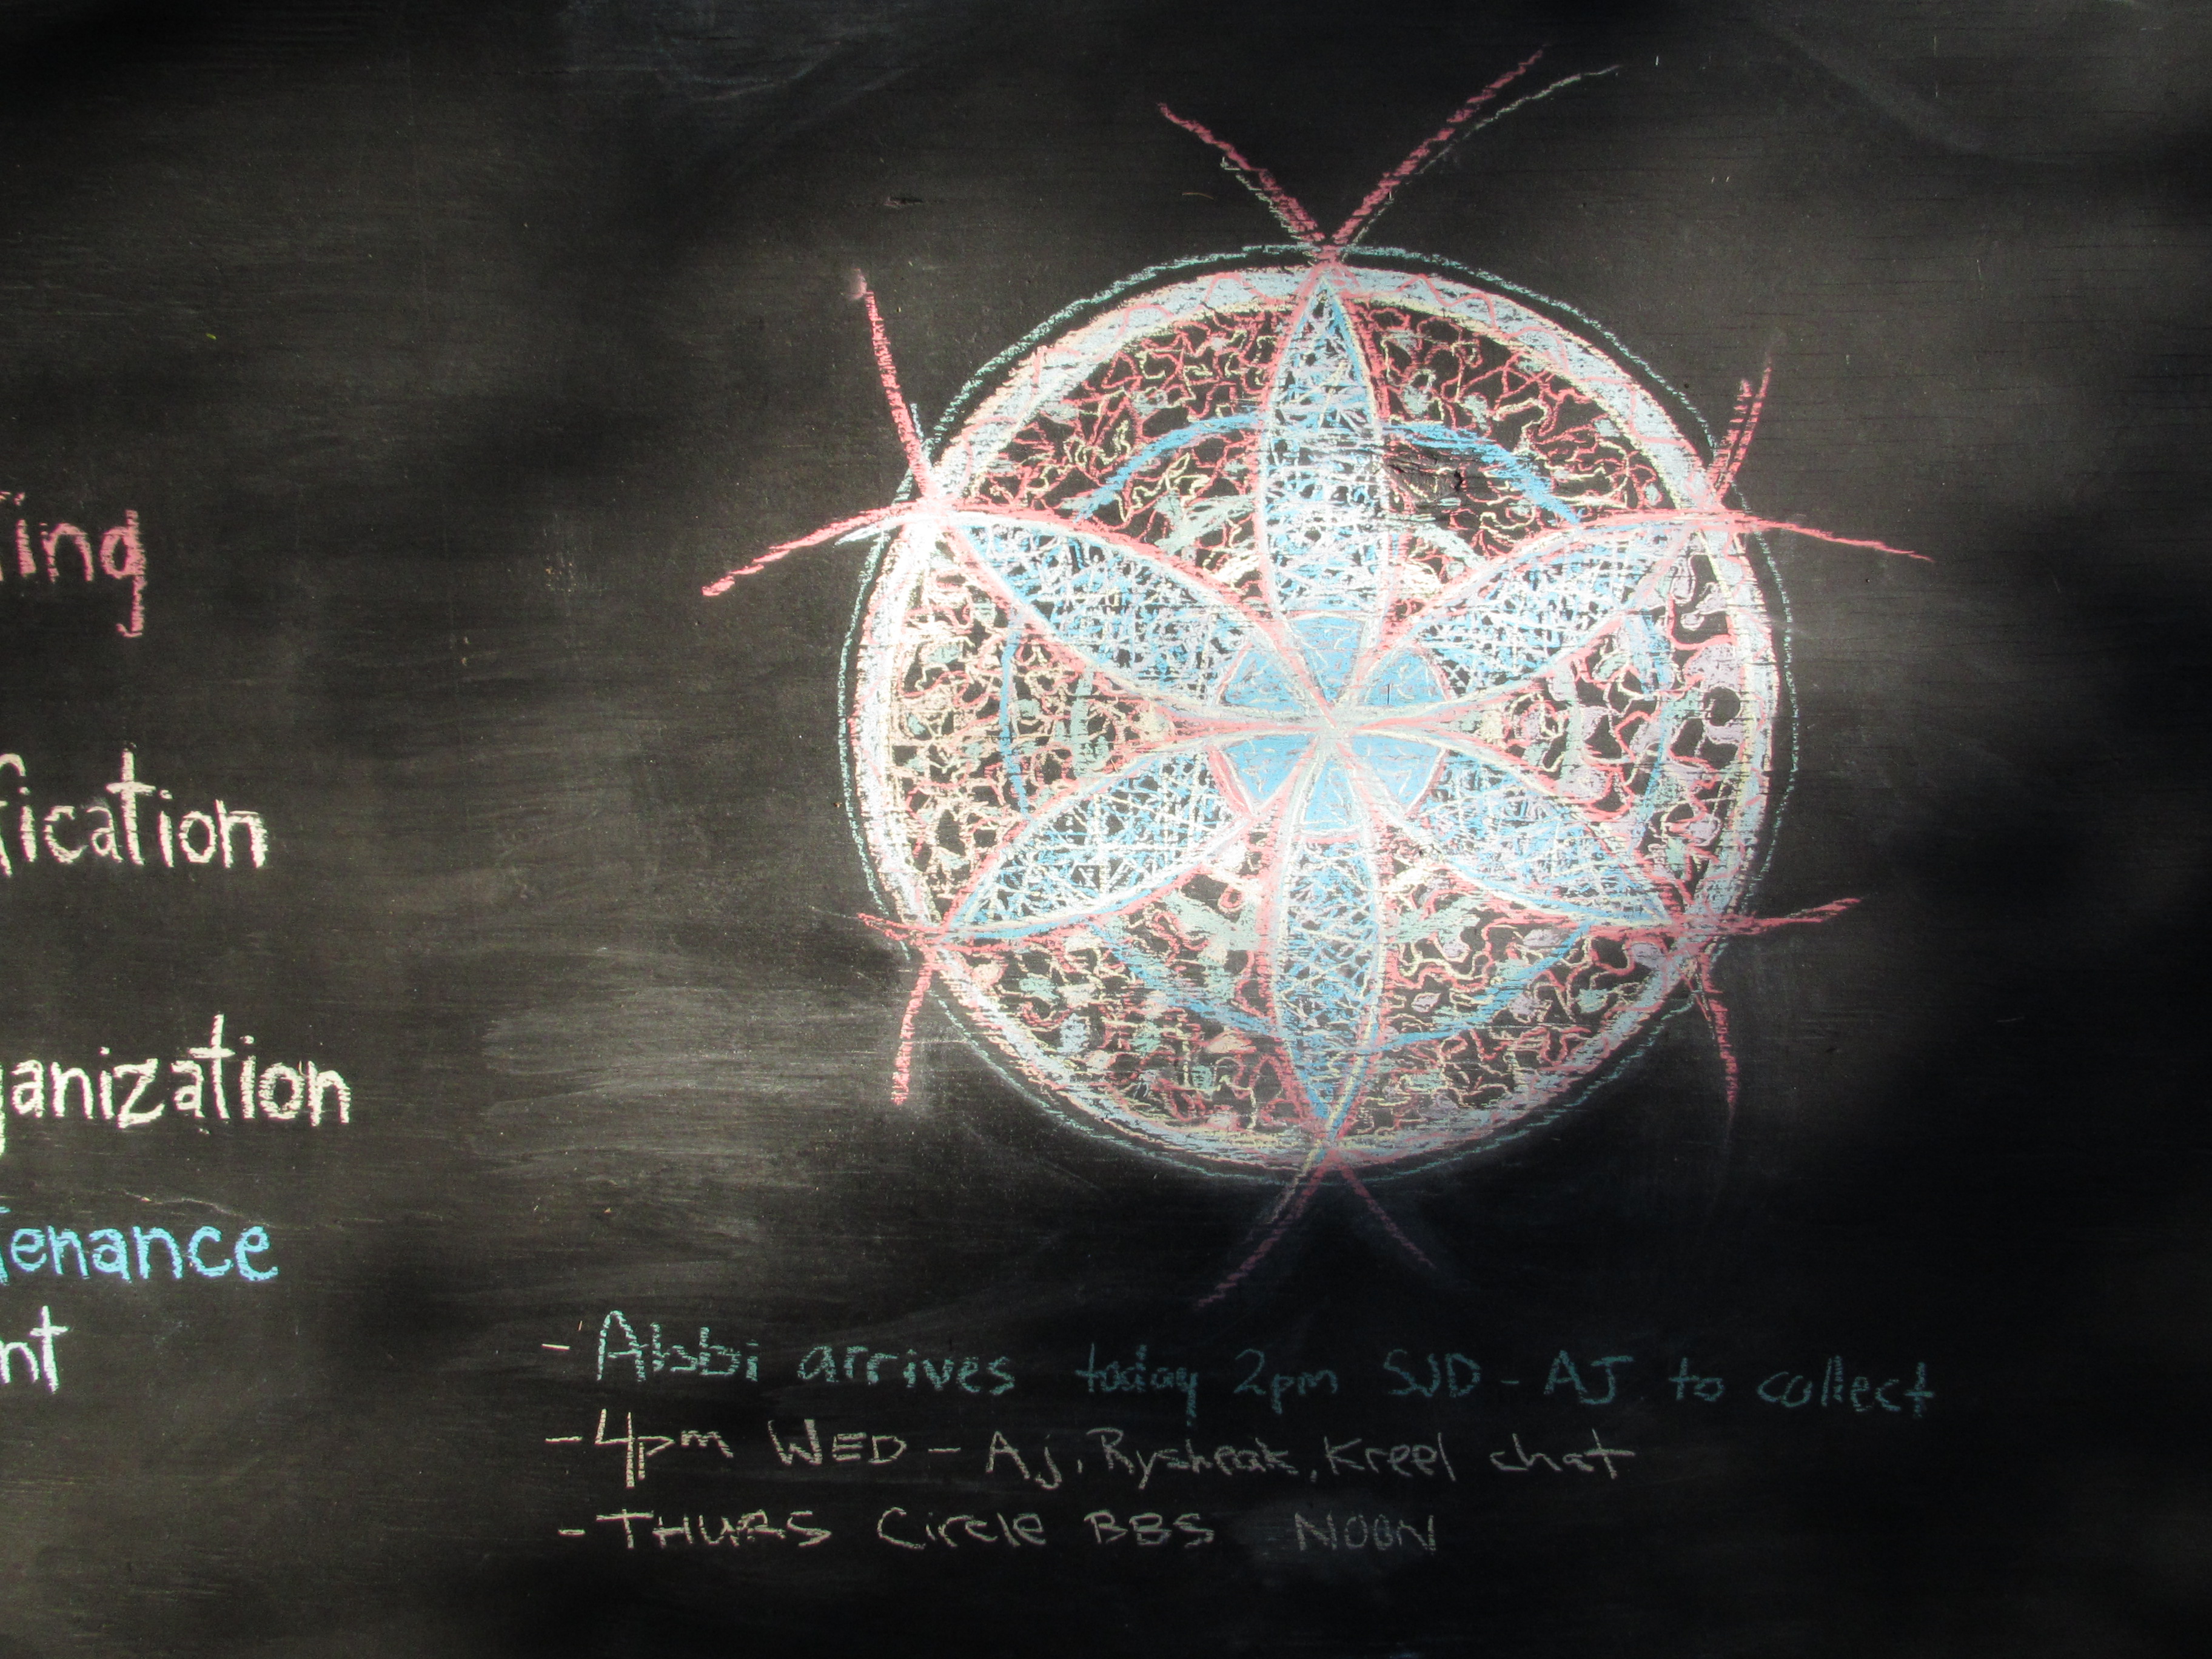 ing
fication
ganization
tenance
nt
- Abbi arrives today 2pm SJD - AJ to collect
- 4pm WED - Aj, Rysheak, Kreel chat
- THURS Circle BBS NOON